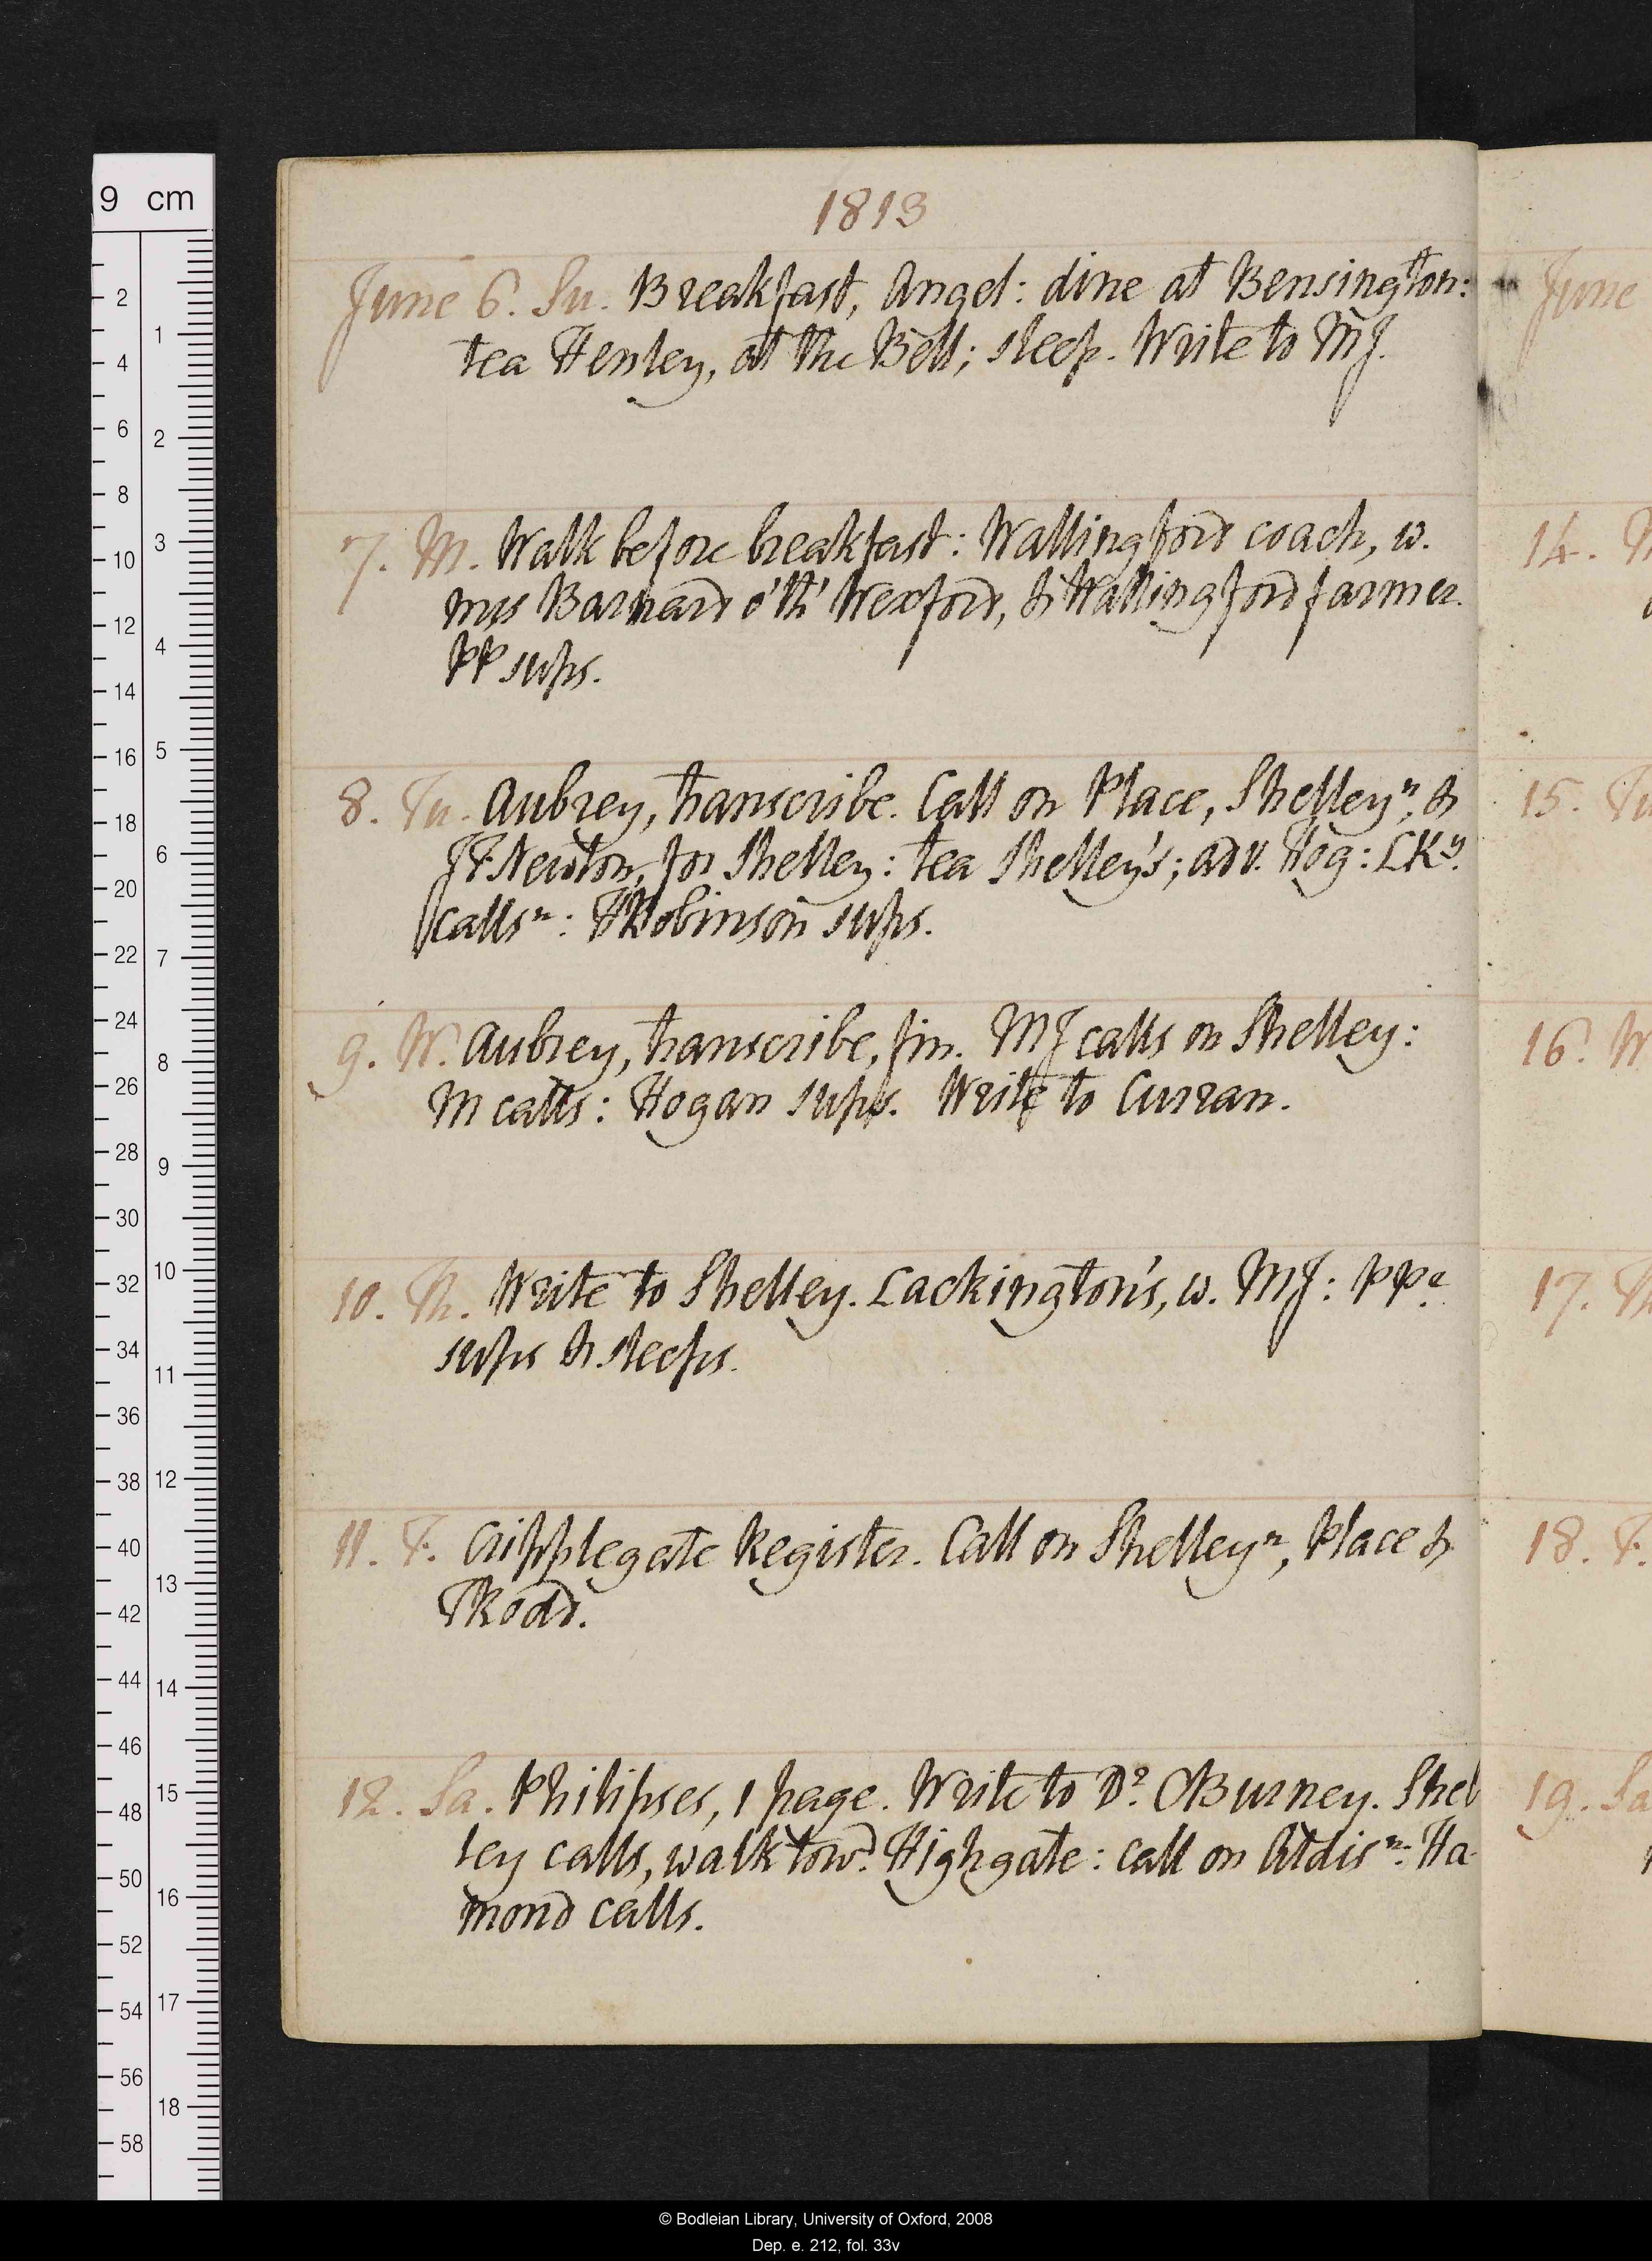 1813
June 6. Su. Breakfast, Angel: dine at Bensington:
tea Henley, at the Bell; sleep. Write to MJ.
7. M. Walk before breakfast: Wallingford coach, w.
mrs Barnard o' th' Wexford, & Wallingford farmer.
PP sups.
8. Tu. Aubrey, transcribe. Call on Place, Shelleyⁿ, &
JFNewton, for Shelley: tea Shelley's; adv. Hog: LKy.
callsⁿ: HRobinson sups.
9. W. Aubrey, transcribe, fin. MJ calls on Shelley:
M calls: Hogan sups. Write to Curran.
10. Th. Write to Shelley. Lackington's, w. MJ: PPr
sups & sleeps.
11. F. Cripplegate Register. Call on Shelleyⁿ, Place &
TRodd.
12. Sa. Philipses, 1 page. Write to Dr. CBurney. Shel
ley calls, walk towd. Highgate: call on Aldisⁿ: Ha-
mond calls.
June
14.
15. Tu
16. W
17. Th
18. F.
19. Sa
9 cm
2
4
6
8
10
12
14
16
18
20
22
24
26
28
30
32
34
36
38
40
42
44
46
48
50
52
54
56
58
1
2
3
4
5
6
7
8
9
10
11
12
13
14
15
16
17
18
© Bodleian Library, University of Oxford, 2008
Dep. e. 212, fol. 33v